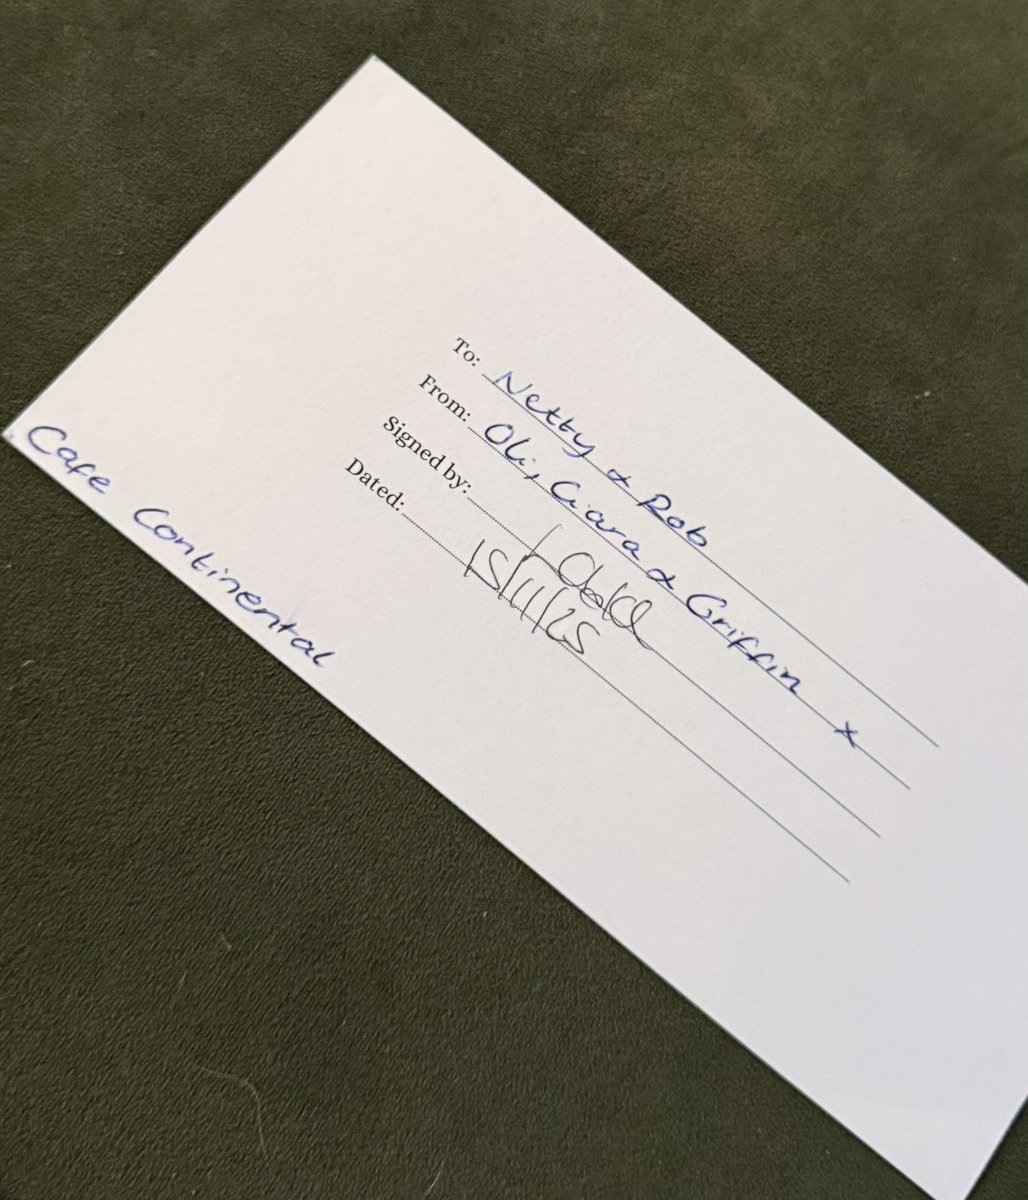 To: Netty & Rob
From: Oli, Ciara & Griffin x
Signed by:
Dated: 15/11/25
Cafe Continental